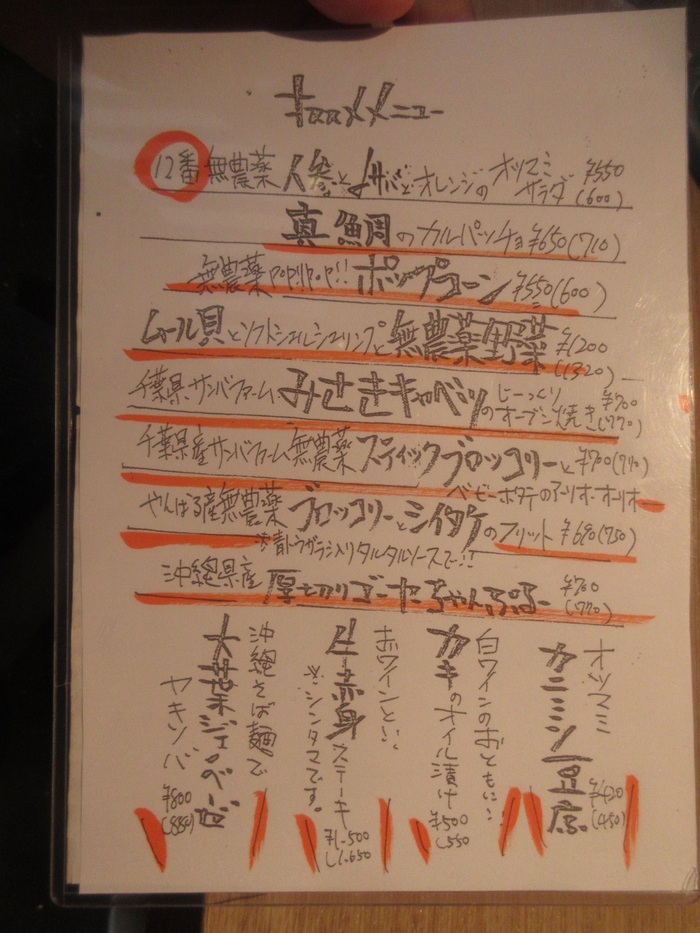 オススメメニュー
12番 無農薬 人参とサバとオレンジのオツマミサラダ ¥550 (600)
真鯛のカルパッチョ ¥650 (710)
無農薬 ポップコーン ¥550 (600)
ムール貝とソフトシェルシュリンプと無農薬野菜 ¥1200 (1320)
千葉県サンバファーム みさきキャベツのじーっくりオーブン焼き ¥700 (770)
千葉県産サンバファーム無農薬 スティックブロッコリーと ¥700 (770)
ベビーホタテのアーリオ・オーリオ
やんばる産無農薬 ブロッコリーとシイタケのフリット ¥690 (750)
※青トウガラシ入りタルタルソースで!!
沖縄県産 厚切りゴーヤーちゃんぷるー ¥700 (770)
オツマミ
カニミソ豆腐 ¥420 (450)
白ワインのおともに…
カキのオイル漬け ¥500 (550)
赤ワインと…
牛赤身ステーキ ¥1,500 (1,650)
※シンタマです。
沖縄そば麺で
大葉ジェノベーゼ
ヤキソバ ¥800 (880)